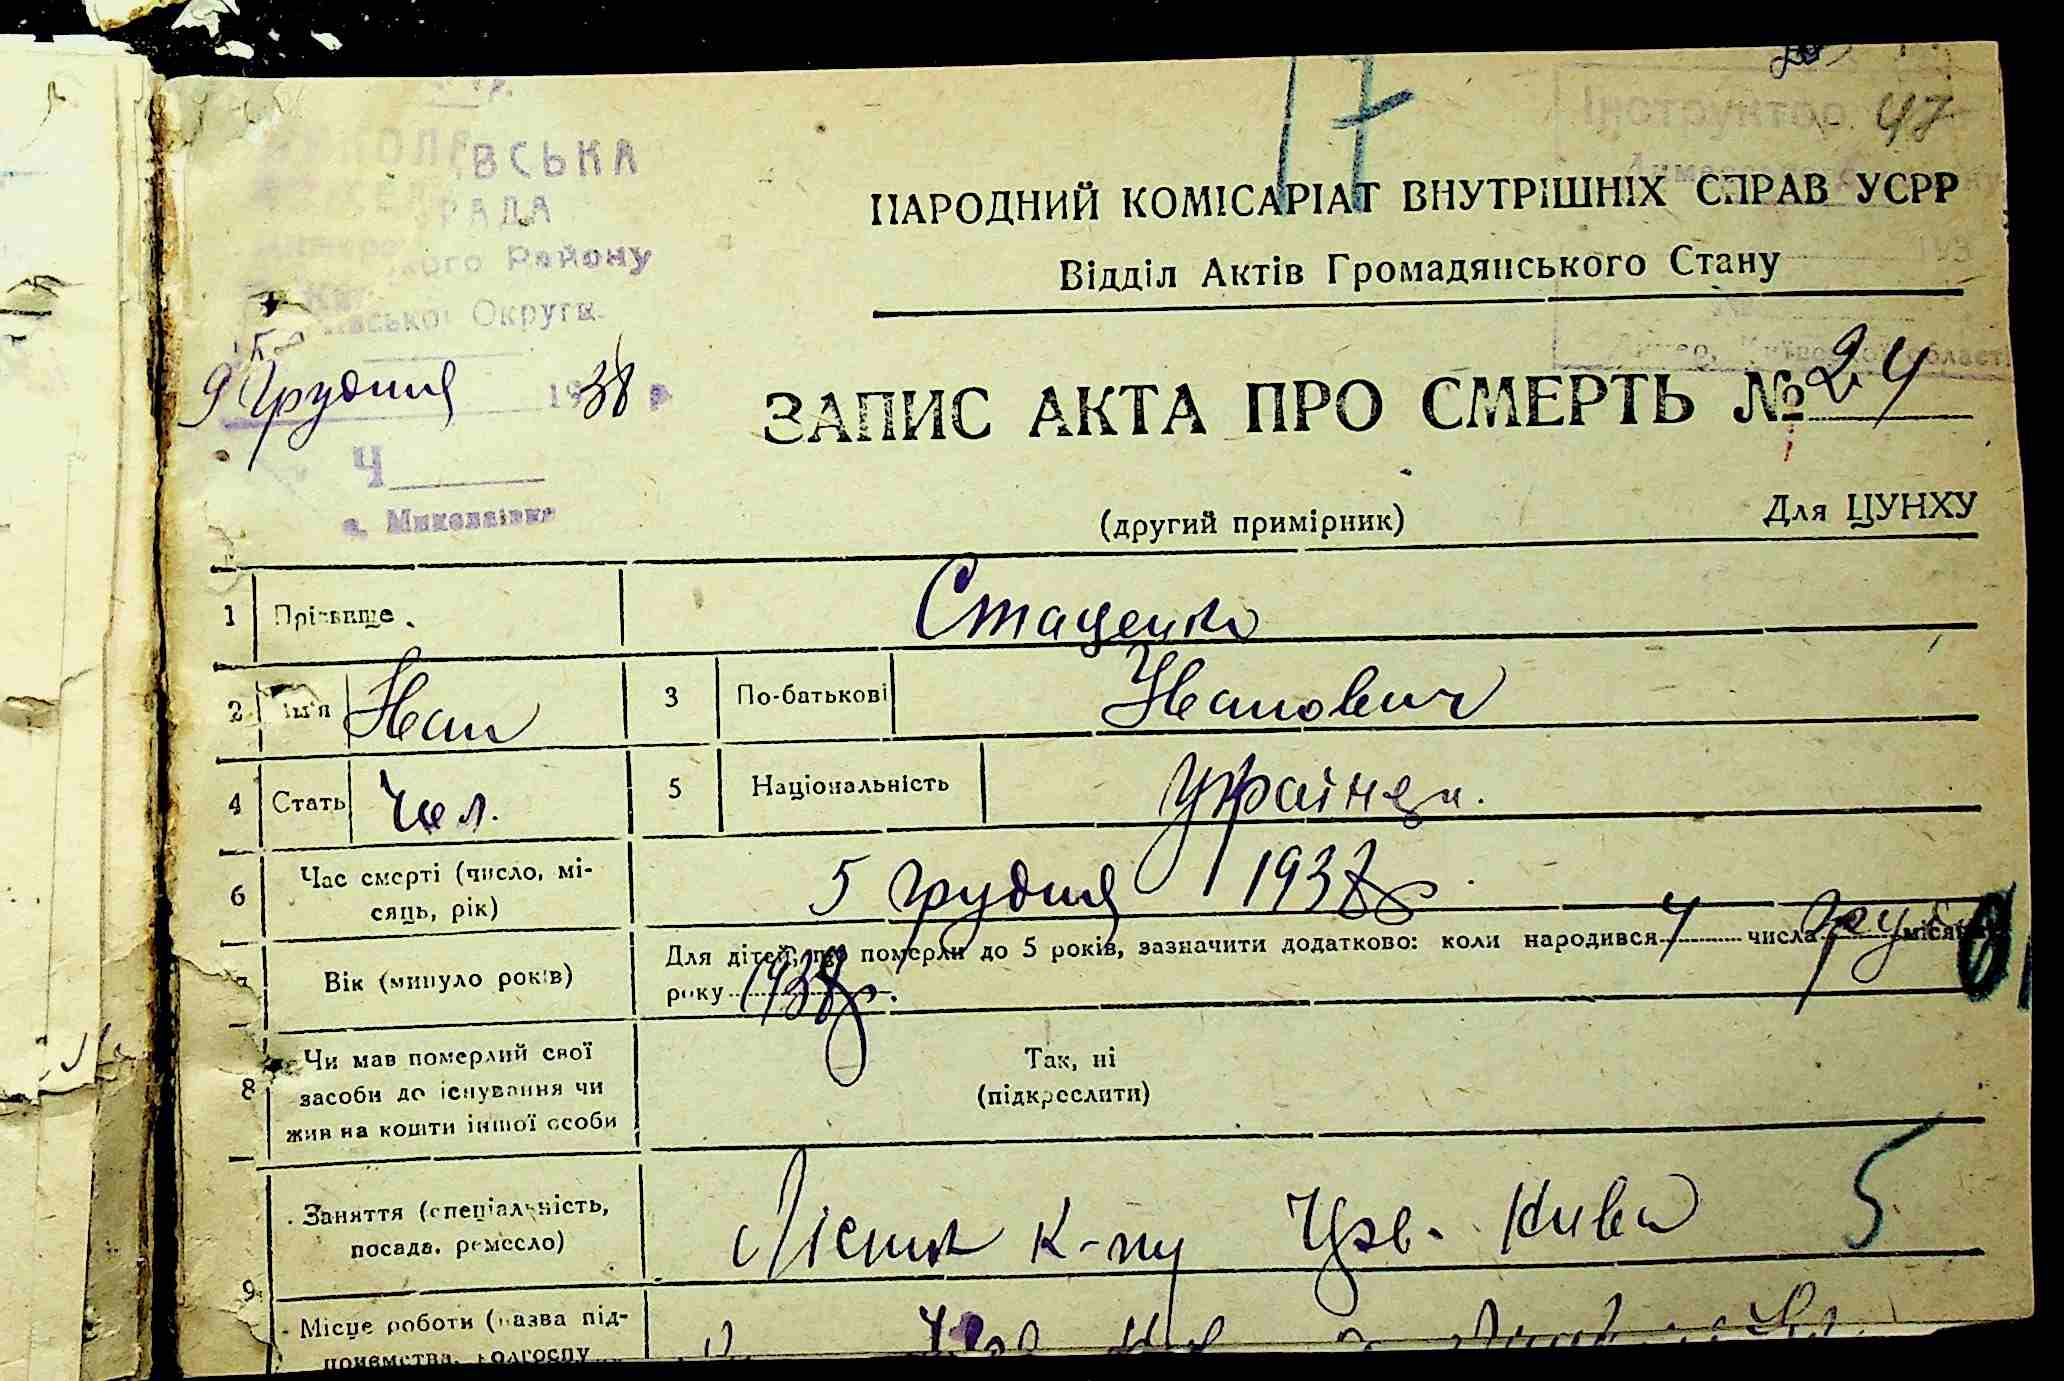 17
Інструктор 47
ВСЬКА
РАДА
Району
Округи
НАРОДНИЙ КОМІСАРІАТ ВНУТРІШНІХ СПРАВ УСРР
Відділ Актів Громадянського Стану
193
9 Грудня 1938 р
ЗАПИС АКТА ПРО СМЕРТЬ № 24
Ч
с. Миколаївка
(другий примірник) Для ЦУНХУ
1 Прізвище Стаценко
2 ім'я Іван 3 По-батькові Іванович
4 Стать Чол. 5 Національність Українец.
6 Час смерті (число, місяць, рік) 5 грудня 1938 р.
7 Вік (минуло років) Для дітей, що померли до 5 років, зазначити додатково: коли народився 4 числа груд місяця
року 1938 р.
8 Чи мав померлий свої
засоби до існування чи
жив на кошти іншої особи
Так, ні
(підкреслити)
9 Заняття (спеціальність,
посада, ремесло)
к-пу Чрв. Нива 5
Місце роботи (назва під-
приємства, колгоспу